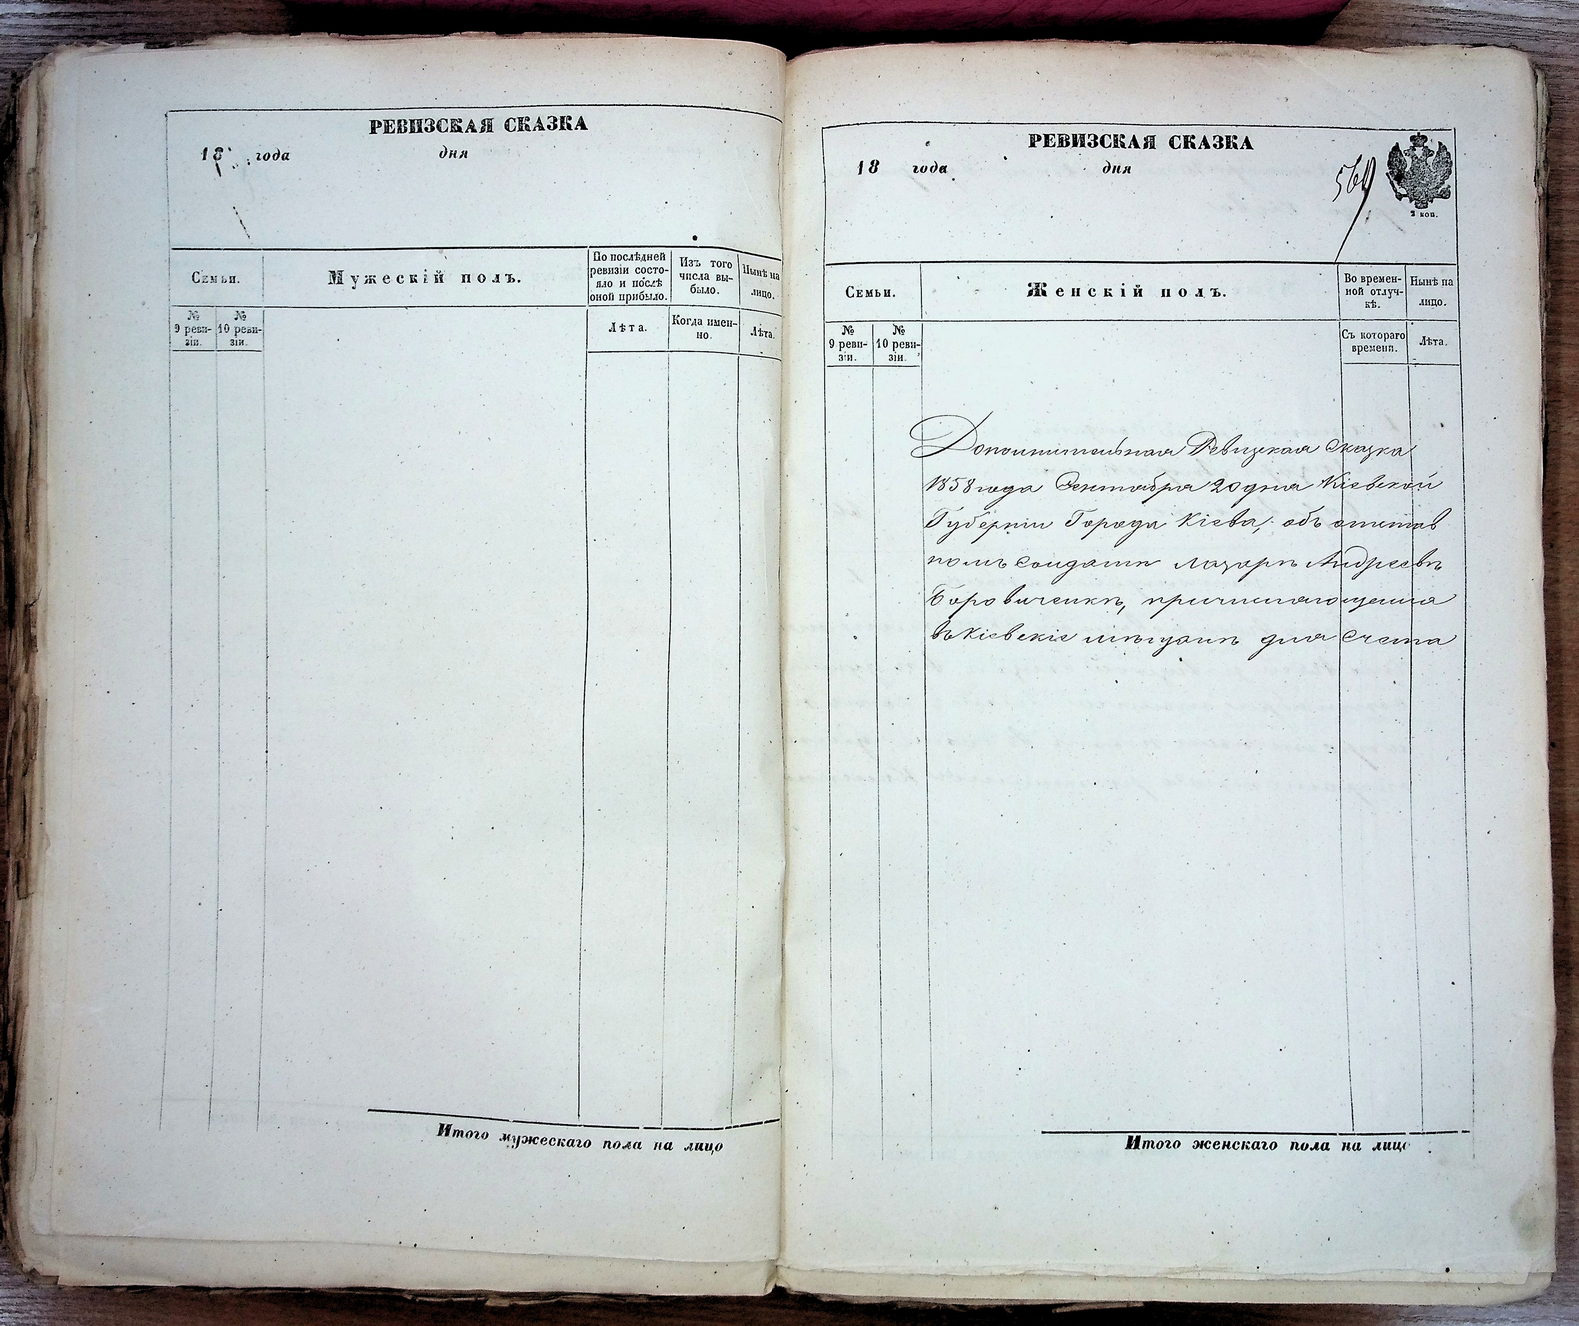 РЕВИЗСКАЯ СКАЗКА
18 года дня
Семьи.
Мужескій полъ.
По послѣдней ревизіи состояло и послѣ оной прибыло.
Изъ того числа выбыло.
Нынѣ на лицо.
№ 9 ревизіи.
№ 10 ревизіи.
Лѣта.
Когда именно.
Лѣта.
Итого мужескаго пола на лицо
РЕВИЗСКАЯ СКАЗКА
18 года дня
569
2 коп.
Семьи.
Женскій полъ.
Во временной отлучкѣ.
Нынѣ на лицо.
№ 9 ревизіи.
№ 10 ревизіи.
Съ котораго времени.
Лѣта.
Дополнительная Ревизская сказка
1858 года Сентября 20 дня Кіевской
Губерніи Города Кіева, объ отстав
номъ солдатѣ Лазарѣ Андреевѣ
Боровиченкѣ, причисляющемся
въ Кіевскіе мѣщане для счета
Итого женскаго пола на лицо